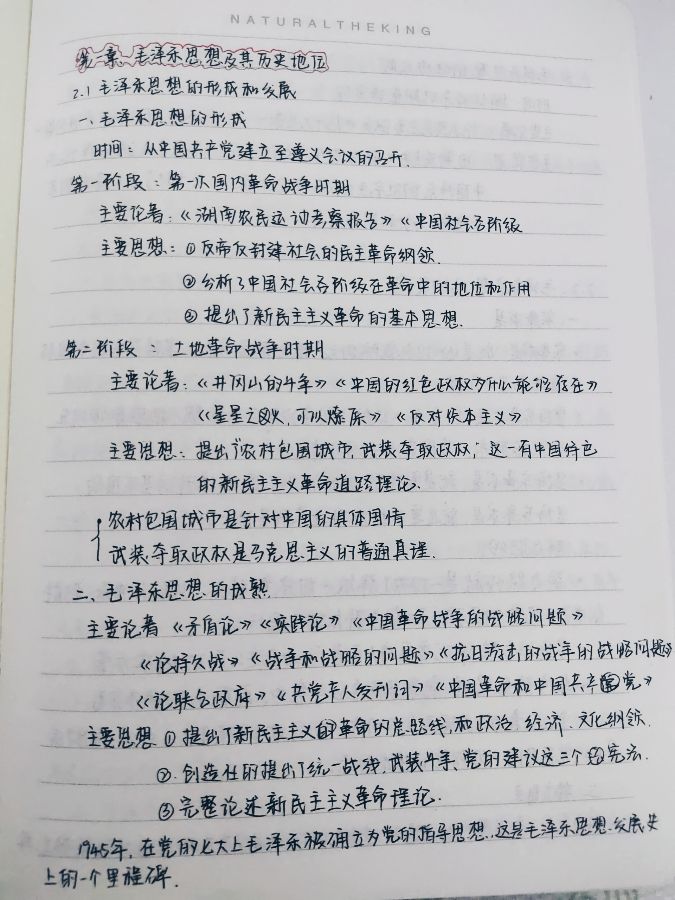 NATURALTHEKING
第二章、毛泽东思想及其历史地位
2.1 毛泽东思想的形成和发展
一、毛泽东思想的形成
时间：从中国共产党建立至遵义会议的召开.
第一阶段：第一次国内革命战争时期
主要论著：《湖南农民运动考察报告》《中国社会各阶级
主要思想：①反帝反封建社会的民主革命纲领.
②分析了中国社会各阶级在革命中的地位和作用
③提出了新民主主义革命的基本思想.
第二阶段：土地革命战争时期
主要论著：《井冈山的斗争》《中国的红色政权为什么能够存在》
《星星之火,可以燎原》《反对本本主义》
主要思想：提出"农村包围城市,武装夺取政权"这一有中国特色
的新民主主义革命道路理论.
农村包围城市是针对中国的具体国情
武装夺取政权是马克思主义的普遍真理.
二、毛泽东思想的成熟.
主要论著《矛盾论》《实践论》《中国革命战争的战略问题》
《论持久战》《战争和战略的问题》《抗日游击的战争的战略问题》
《论联合政府》《共产党人发刊词》《中国革命和中国共产党》
主要思想①提出了新民主主义的革命的总路线,和政治.经济.文化纲领.
②.创造性的提出了统一战线,武装斗争、党的建议这三个法宝.
③完整论述新民主主义革命理论.
1945年,在党的七大上毛泽东被确立为党的指导思想.,这是毛泽东思想发展史
上的一个里程碑.